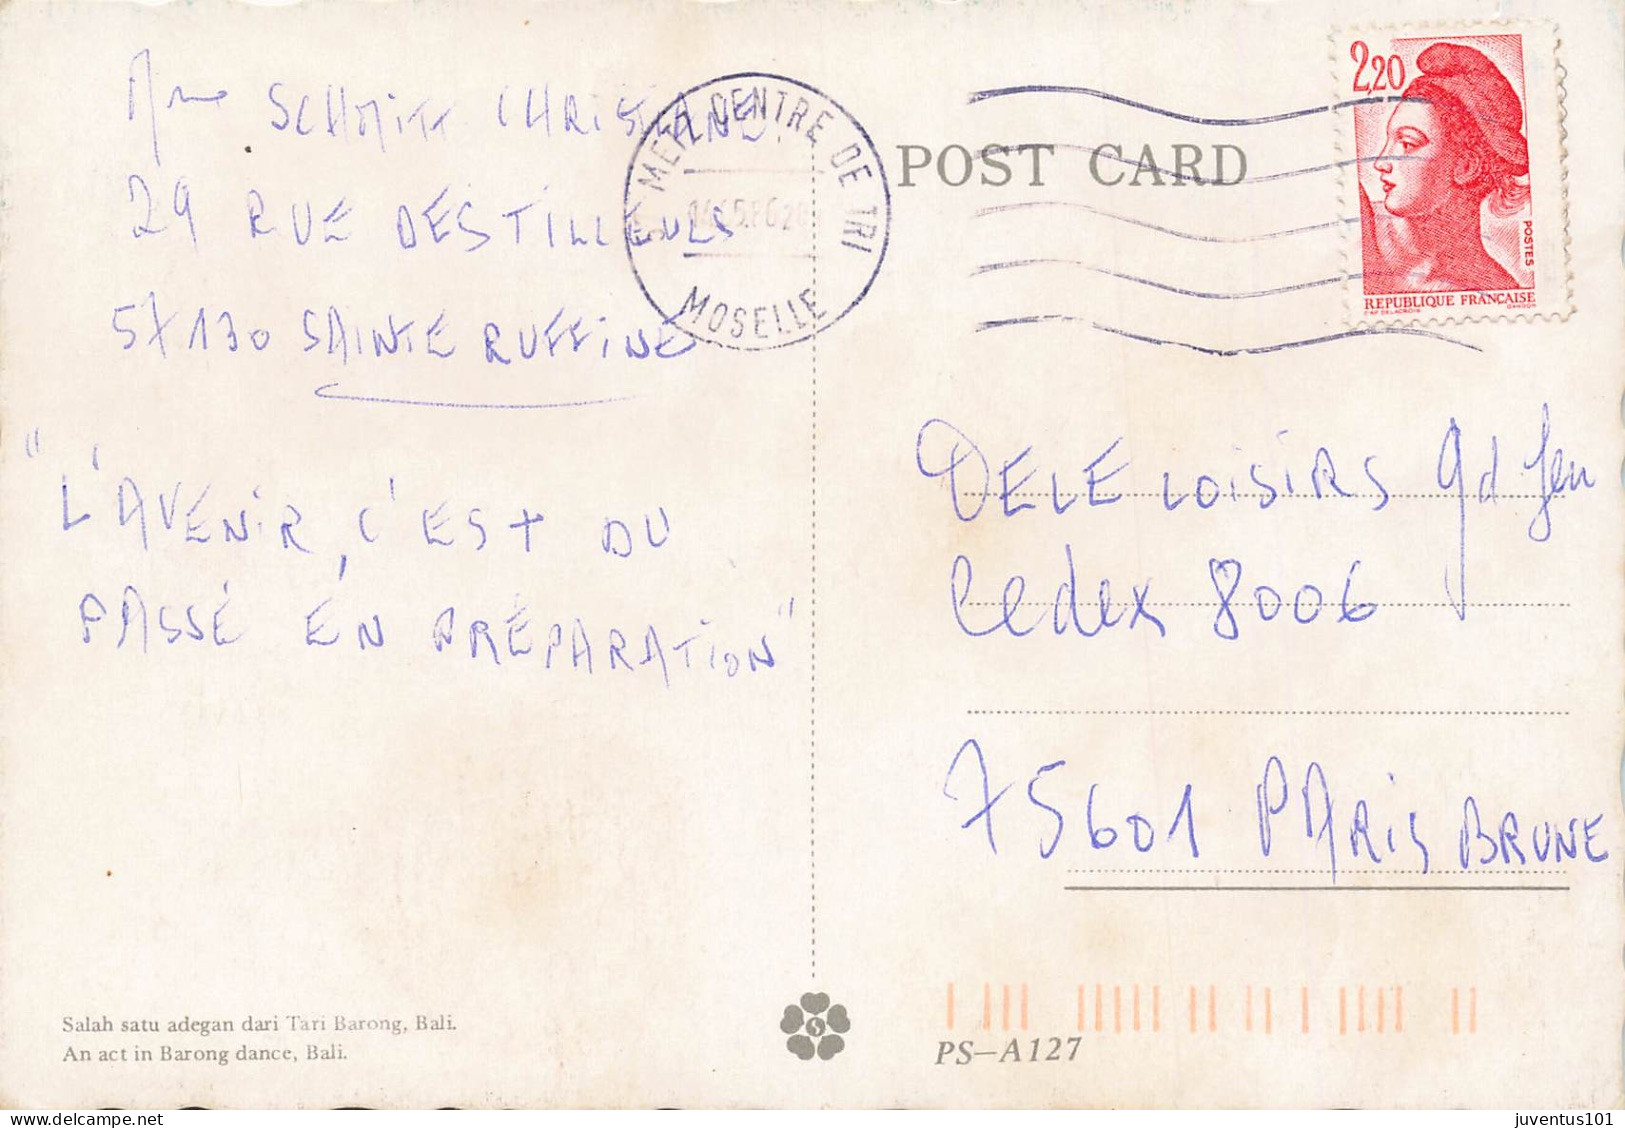 Mme SCHMITT CHRISTIANE
29 RUE DES TILLEULS
57130 SAINTE RUFFINE
"L'AVENIR, C'EST DU
PASSÉ EN PRÉPARATION"
Salah satu adegan dari Tari Barong, Bali.
An act in Barong dance, Bali.
METZ CENTRE DE TRI
MOSELLE
POST CARD
2,20
POSTES
REPUBLIQUE FRANÇAISE
D'AP. DELACROIX
GANDON
DELE LOISIRS gd Jeu
Cedex 8006
75601 PARIS BRUNE
PS-A127
juventus101